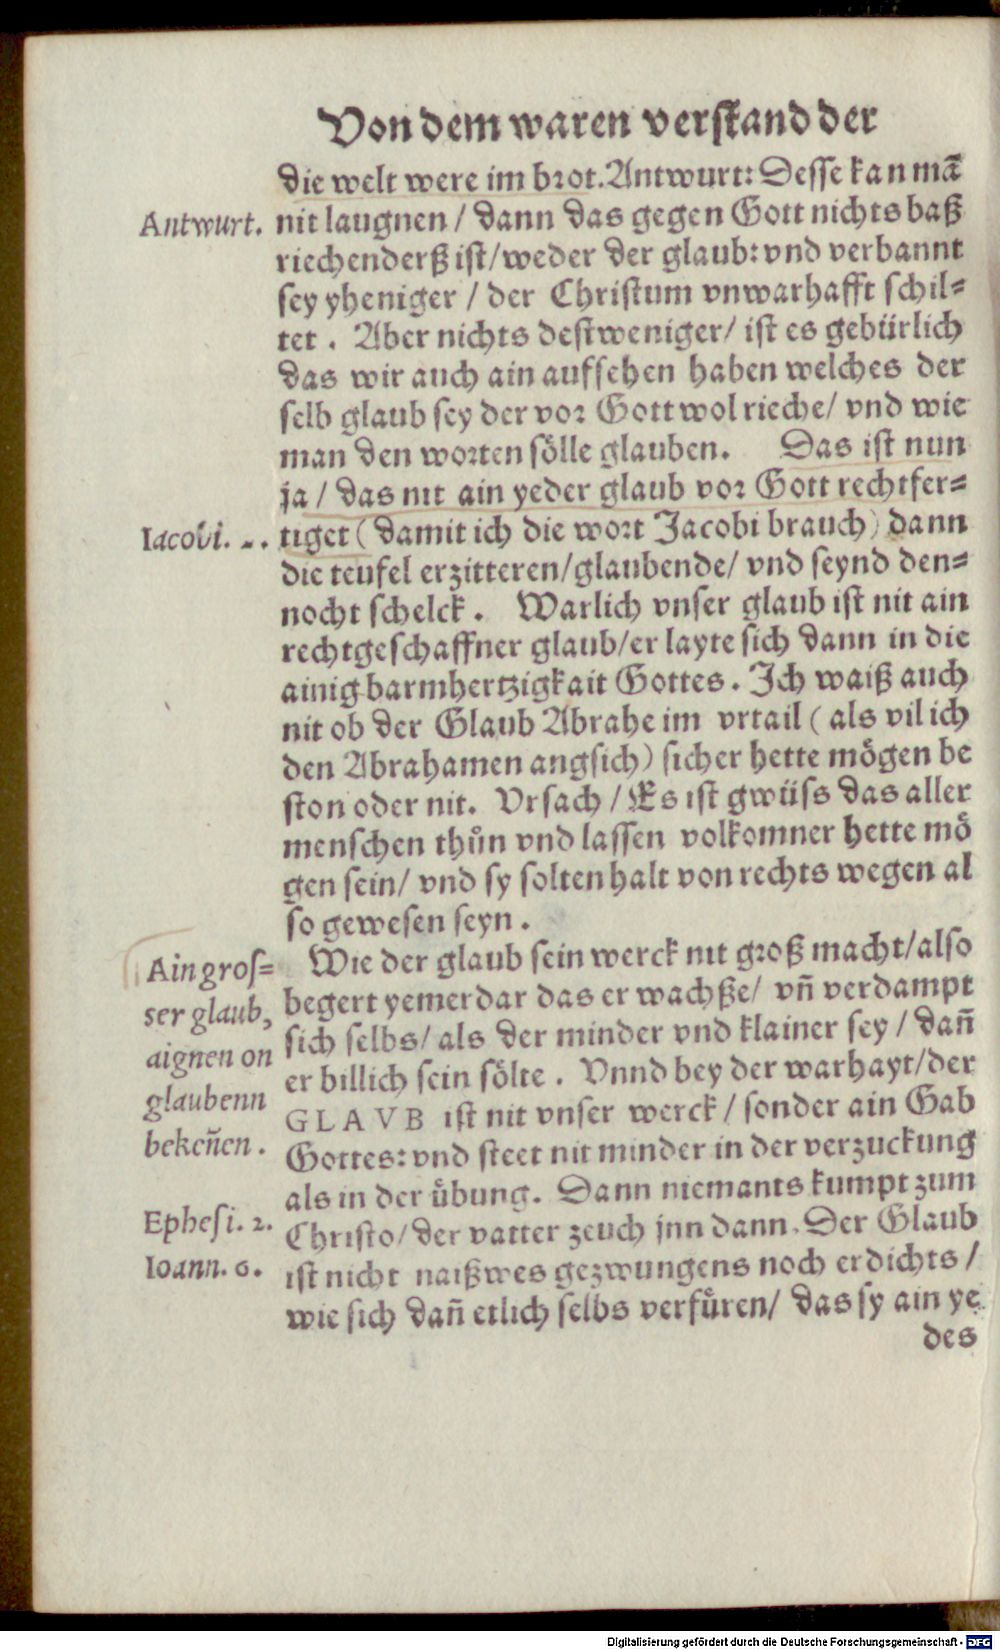 Von dem waren verstand der
die welt were im brot. Antwurt: Desse kan mā
Antwurt.
nit laugnen / dann das gegen Gott nichts baß
riechenderß ist/weder der glaub: vnd verbannt
sey yheniger / der Christum vnwarhafft schil=
tet. Aber nichts destweniger/ ist es gebürlich
das wir auch ain auffsehen haben welches der
selb glaub sey der vor Gott wol rieche/ vnd wie
man den worten sölle glauben. Das ist nun
ja / das nit ain yeder glaub vor Gott rechtfer=
Iacobi. 2.
tiget (damit ich die wort Jacobi brauch) dann
die teufel erzitteren/glaubende/ vnd seynd den=
nocht schelck. Warlich vnser glaub ist nit ain
rechtgeschaffner glaub/er layte sich dann in die
ainig barmhertzigkait Gottes. Ich waiß auch
nit ob der Glaub Abrahe im vrtail (als vil ich
den Abrahamen angsich) sicher hette mögen be
ston oder nit. Vrsach / Es ist gwüss das aller
menschen thůn vnd lassen volkomner hette mö
gen sein/ vnd sy solten halt von rechts wegen al
so gewesen seyn.
Ain gros=
ser glaub,
aignen on
glaubenn
bekeñen.
Wie der glaub sein werck nit groß macht/also
begert yemerdar das er wachße/ vñ verdampt
sich selbs/ als der minder vnd klainer sey / dañ
er billich sein sölte. Vnnd bey der warhayt/der
GLAVB ist nit vnser werck / sonder ain Gab
Gottes: vnd steet nit minder in der verzuckung
Ephesi. 2.
Ioann. 6.
als in der übung. Dann niemants kumpt zum
Christo/der vatter zeuch jnn dann. Der Glaub
ist nicht naißwes gezwungens noch erdichts /
wie sich dañ etlich selbs verfüren/ das sy ain ye
des
Digitalisierung gefördert durch die Deutsche Forschungsgemeinschaft - DFG